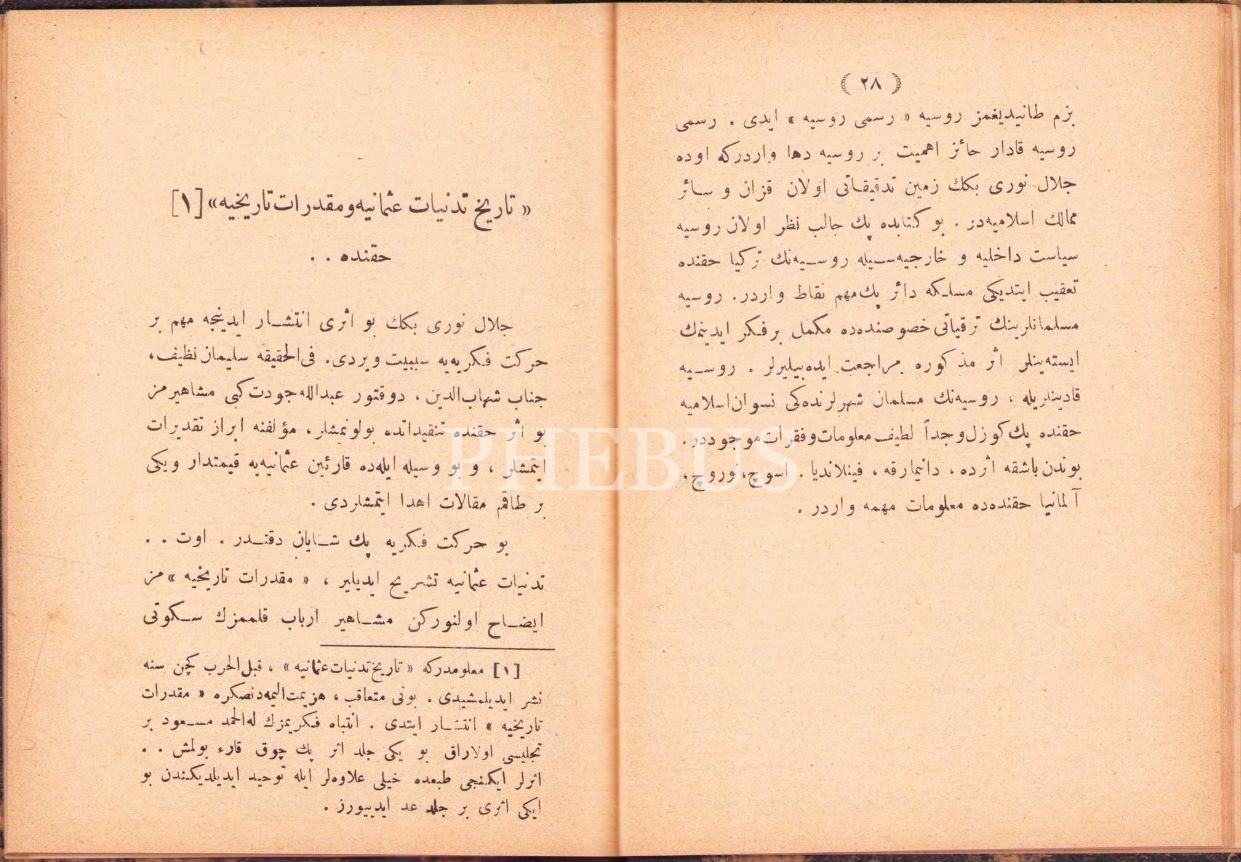 ﴿ ٢٨ ﴾
بزم طانيديغمز روسيه « رسمى روسيه » ايدى . رسمى
روسيه قادار حائز اهميت بر روسيه دها واردركه اوده
جلال نورى بكك زمين تدقيقاتى اولان قزان و سائر
ممالك اسلاميه‌در . بو كتابده پك جالب نظر اولان روسيه
سياست داخليه و خارجيه‌سيله روسيه‌نك تركيا حقنده
تعقيب ايتديكى مسلكه دائر پك مهم نقاط واردر. روسيه
مسلمانلرينك ترقياتى خصوصنده‌ده مكمل بر فكر ايدينمك
ايسته‌ينلر اثر مذكوره مراجعت ايده‌بيليرلر . روسيه
قادينلريله ، روسيه‌نك مسلمان شهرلرنده‌كى نسوان اسلاميه
حقنده پك كوزل وجداً لطيف معلومات وفقرات موجوددر.
بوندن باشقه اثرده ، دانيمارقه ، فينلانديا . اسوچ، نوروچ،
آلمانيا حقنده‌ده معلومات مهمه واردر .
« تاريخ تدنيات عثمانيه ومقدرات تاريخيه» [١]
حقنده . .
جلال نورى بكك بو اثرى انتشار ايدنجه مهم بر
حركت فكريه‌يه سببيت ويردى. فى‌الحقيقه سليمان نظيف،
جناب شهاب‌الدين ، دوقتور عبدالله جودت كبى مشاهيرمز
بو اثر حقنده تنقيداتده بولونمشلر، مؤلفنه ابراز تقديرات
ايتمشلر ، و بو وسيله ايله‌ده قارئين عثمانيه‌يه قيمتدار ويكى
بر طاقم مقالات اهدا ايتمشلردى .
بو حركت فكريه پك شايان دقتدر . اوت . .
تدنيات عثمانيه تشريح ايديلير ، « مقدرات تاريخيه » مز
ايضاح اولنوركن مشاهير ارباب قلممزك سكوتى
[١] معلومدركه « تاريخ تدنيات عثمانيه» ، قبل‌الحرب كچن سنه
نشر ايديلمشيدى . بونى متعاقب ، هزيمت اليمه‌دنصكره « مقدرات
تاريخيه » انتشار ايتدى . انتباه فكريمزك له‌الحمد مسعود بر
تجليسى اولاراق بو يكى جلد اثر پك چوق قارء بولمش . .
اثرلر ايكنجى طبعده خيلى علاوه‌لر ايله توحيد ايديلديكندن بو
ايكى اثرى بر جلد عد ايدييورز .
PHEBUS